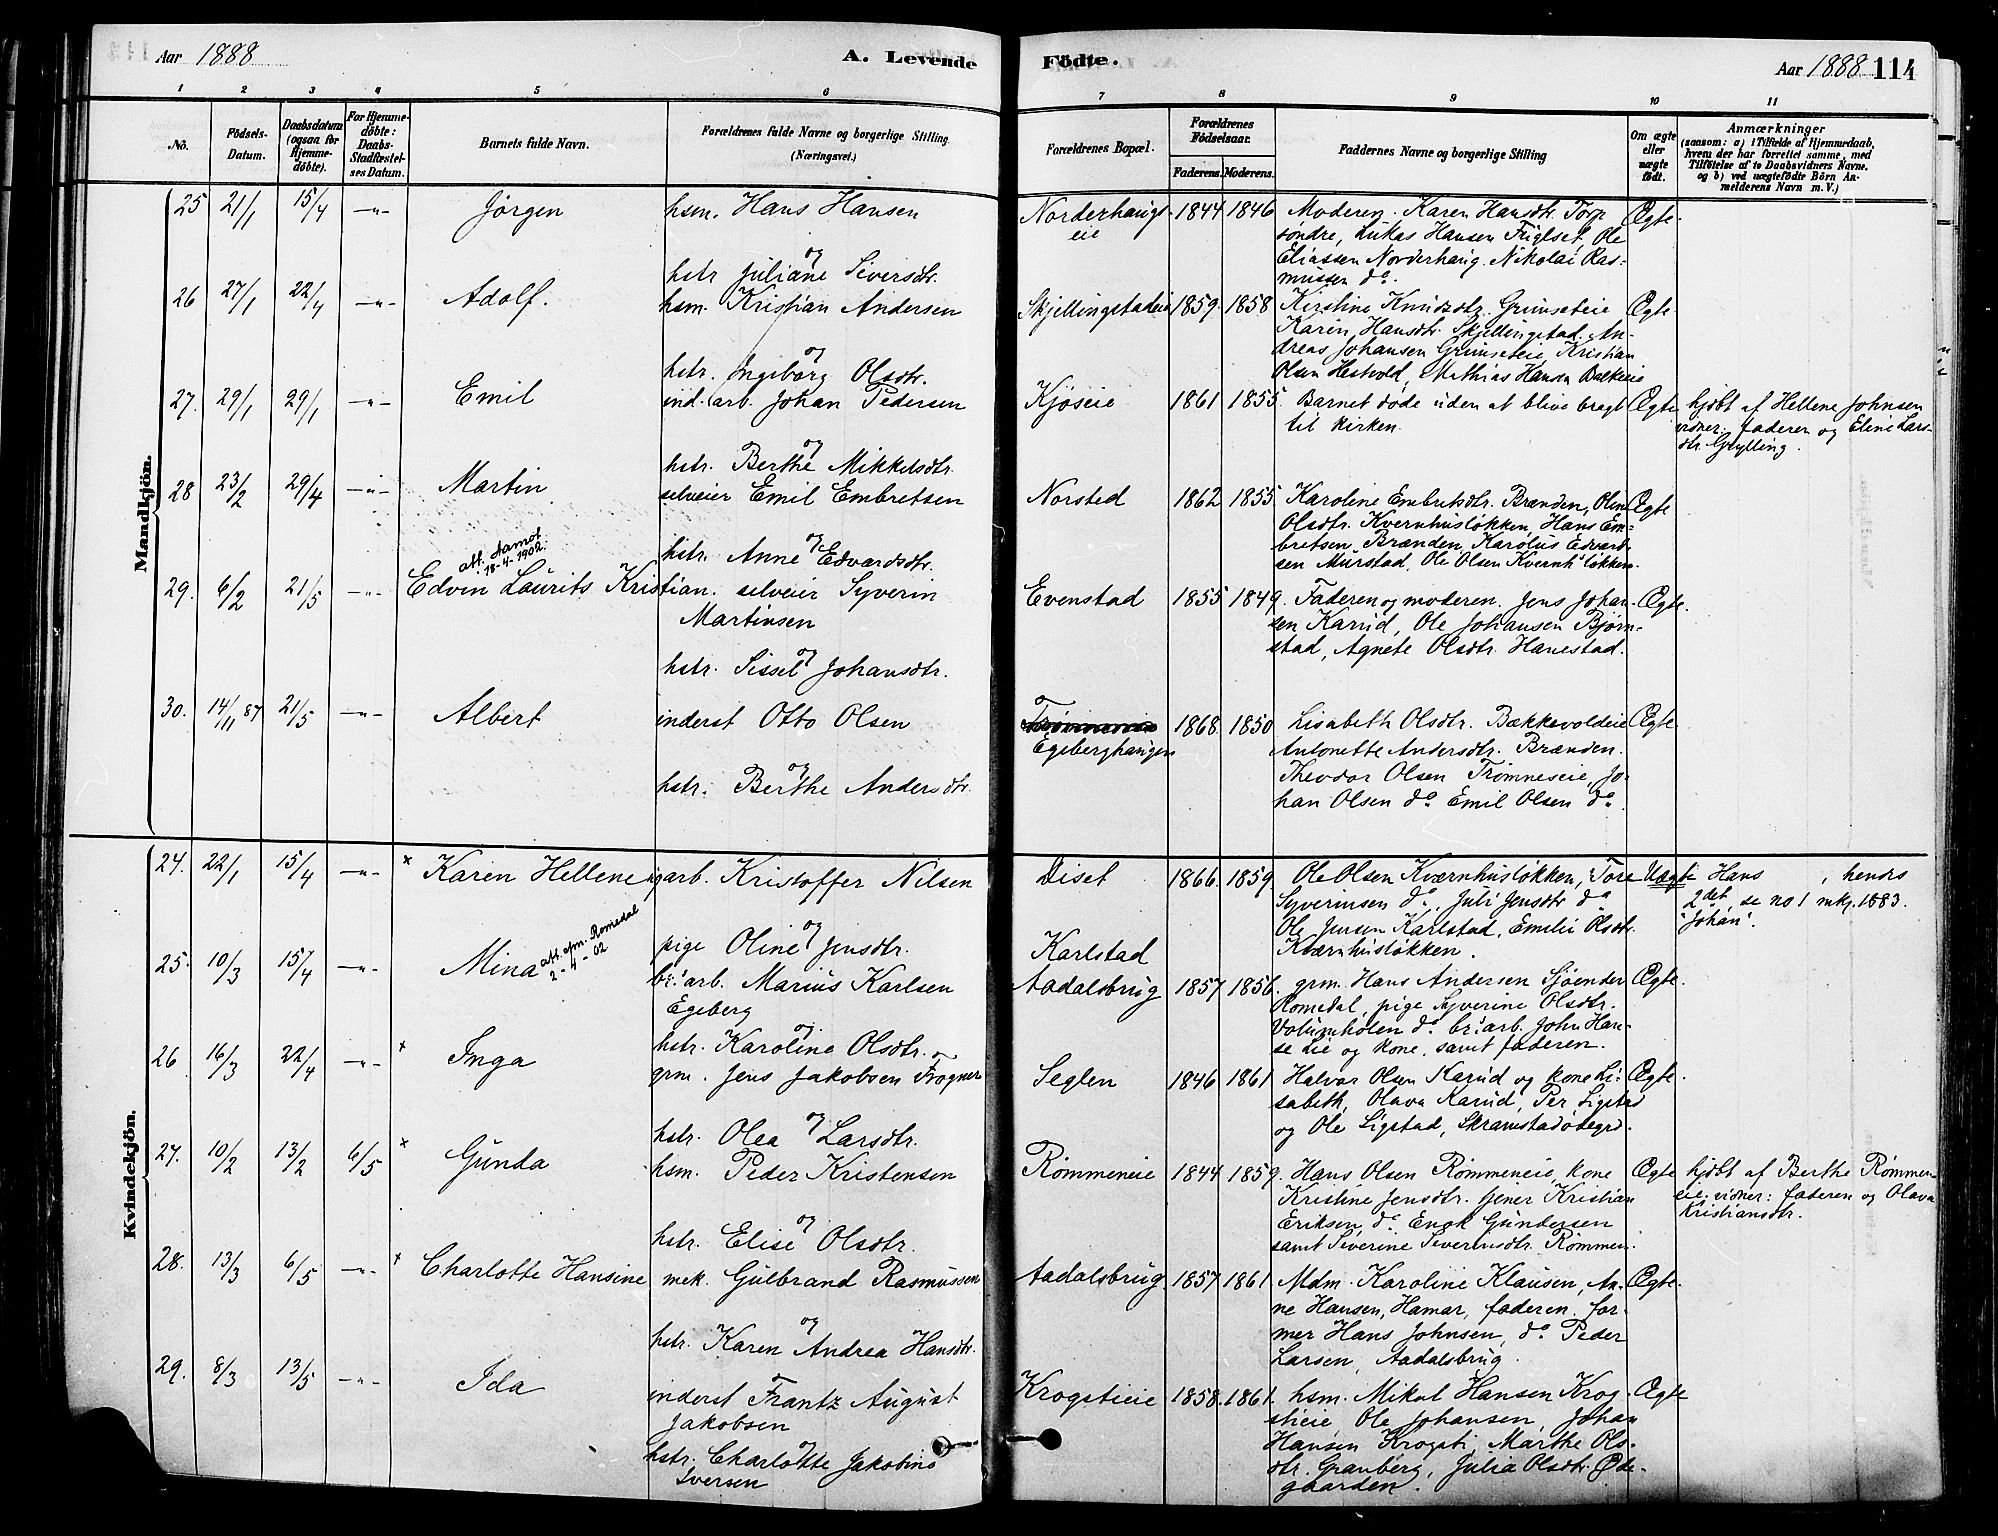 Aar 1888
A. Levende
Födte.
Aar 1888 114
1 2 3 4 5 6 7 8 9 10 11
No.
Födsels-
Datum.
Daabsdatum
(ogsaa for
Hjemme-
döbte).
For Hjemme-
döbte:
Daabs-
Stadfæstel-
ses Datum.
Barnets fulde Navn.
Forældrenes fulde Navne og borgerlige Stilling
(Næringsvei.)
Forældrenes Bopæl.
Forældrenes
Födselsaar.
Faderens. Moderens.
Faddernes Navne og borgerlige Stilling
Om ægte
eller
uægte
födt.
Anmærkninger
(saasom: a) i Tilfælde af Hjemmedaab,
hvem der har forrettet samme, med
Tilföielse af to Daabsvidners Navne,
og b) ved uægtefödte Börn An-
melderens Navn m. V.)
Mandkjön.
25 21/1 15/4 -"- Jörgen hsm. Hans Hansen
og
hstr Juliane Siversdtr.
Norderhaugs-
eie
1844 1846
Moderen. Karen Hansdtr. Torp
söndre, Lukas Hansen Fuglset, Ole
Eliassen Norderhaug. Nikolai Ras-
mussen do.
Ægte.
26 27/1 22/4 -"- Adolf. hsm. Kristian Andersen
og
hstr. Ingeborg Olsdtr.
Skjellingstadeie 1859. 1858
Kirstine Knudsdtr. Grimseteie
Karen Hansdtr. Skjellingstad. An-
dreas Johansen Grimseteie, Kristian
Olsen Hestvold, Mathias Hansen Bakkeeie
Ægte
27. 29/1 29/1 -"- Emil ind. arb. Johan Pedersen
og
hstr. Berthe Mikkelsdtr.
Kjöseie 1861 1855.
Barnet döde uden at blive bragt
til kirken.
Ægte
hjdbt af Hellene Johnsen
vidner: faderen og Eline Lars-
dtr. Gylling.
28 23/2 29/4 -"- Martin selveier Emil Embretsen
og
hstr. Anne Edvardsdtr.
Norsted 1862 1855
Karoline Embretsdtr. Brænden, Oline
Olsdtr. Kvernhuslökken, Hans Em-
bretsen Brænden, Karolus Edvard-
sen Murstad, Ole Olsen Kvernhslökken.
Ægte
att. Aamot
18-4-1902.
29. 6/2 21/5 -"- Edvin Laurits Kristian. selveier Syverin
Martinsen
og
hstr. Sissel Johansdtr.
Evenstad 1855 1849.
Faderen og moderen. Jens Johan-
sen Karud, Ole Johansen Bjørn-
stad, Agnete Olsdtr. Hanestad.
Ægte.
30. 14/11 87 21/5 -"- Albert inderst Otto Olsen
og
hstr. Berthe Andersdtr.
Egeberghaugen
1868. 1850
Lisabeth Olsdtr. Bækkevoldeie
Antonette Andersdtr. Brænden.
Theodor Olsen Trømneseie, Jo-
han Olsen do Emil Olsen do
Ægte
Kvindekjön.
24. 22/1 15/4 -"- × Karen Hellene ug arb. Kristoffer Nilsen
og
pige Oline Jensdtr.
Diset
Karlstad
1866. 1859
Ole Olsen Kværnhuslökken, Tore
Syverinsen do, Juli Jensdtr do
Ole Jensen Karlstad, Emilie Olsdtr.
Kværnhuslökken.
Uægte
Hans , hendes
2det, se no 1 mkj. 1883.
"Johan".
25. 10/3 15/4 -"- Mina att. ofm. Romedal
2-4-02
br. arb. Marius Karlsen
Egeberg
og
hstr. Karoline Olsdtr.
Aadalsbrug 1857 1856.
grm. Hans Andersen Sjøender
Romedal, pige Syverine Olsdtr.
Volumholen do br. arb. John Han-
se Lie og kone, samt faderen.
Ægte.
26 16/3 22/4 -"- × Inga grm. Jens Jakobsen Frogner
og
hstr. Olea Larsdtr.
Seglen 1846 1861
Halvor Olsen Karud og kone Li-
sabeth, Olava Karud, Per Ligstad
og Ole Ligstad, Skramstadødegrd.
Ægte.
27. 10/2 13/2 6/5 × Gunda hsm. Peder Kristensen
og
hstr. Elise Olsdtr.
Rømmeneie 1844 1859.
Hans Olsen Rømmeneie, kone
Kristine Jensdtr. Gener Kristian
Eriksen do. Enok Gundersen
samt Severine Severinsdtr. Rømmen.
Ægte
hjdbt af Berthe Rømmen-
eie. vidner: faderen og Olava
Kristiansdtr.
28. 13/3 6/5 -"- × Charlotte Hansine mek. Gulbrand Rasmussen
og
hstr. Karen Andrea Hansdtr.
Aadalsbrug 1857 1861.
Mdm. Karoline Klausen, An-
ne Hansen, Hamar, faderen. for-
mer Hans Johnsen, do. Peder
Larsen, Aadalsbrug.
Ægte.
29. 8/3 13/5 -"- Ida inderst Frantz August
Jakobsen
og
hstr. Charlotte Jakobine
Iversen
Krogstieie 1858. 1861.
hsm. Mikal Hansen Krog-
stieie, Ole Johansen, Johan
Hansen Krogsti, Marthe Ols-
dtr. Granberg, Julia Olsdtr. Øde-
gaarden.
Ægte